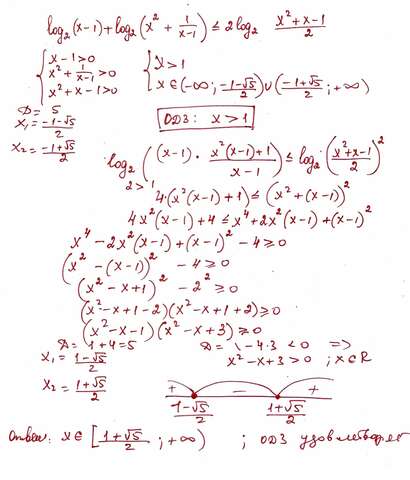 log₂(x-1)+log₂(x²+1/(x-1)) ≤ 2log₂ (x²+x-1)/2
{ x-1>0
x²+1/(x-1)>0
x²+x-1>0
{ x>1
x∈(-∞; (-1-√5)/2)∪((-1+√5)/2; +∞)
D=5
x₁=(-1-√5)/2
x₂=(-1+√5)/2
ОДЗ: x>1
log₂((x-1)·(x²(x-1)+1)/(x-1)) ≤ log₂((x²+x-1)/2)²
2>1
4·(x²(x-1)+1) ≤ (x²+(x-1))²
4x²(x-1)+4 ≤ x⁴+2x²(x-1)+(x-1)²
x⁴-2x²(x-1)+(x-1)²-4≥0
(x²-(x-1))²-4≥0
(x²-x+1)²-2²≥0
(x²-x+1-2)(x²-x+1+2)≥0
(x²-x-1)(x²-x+3)≥0
D=1+4=5
x₁=(1-√5)/2
x₂=(1+√5)/2
D=1-4·3<0 ⇒
x²-x+3>0; x∈R
+ - +
(1-√5)/2 (1+√5)/2
Ответ: x∈[(1+√5)/2; +∞) ; ОДЗ удовлетворяет